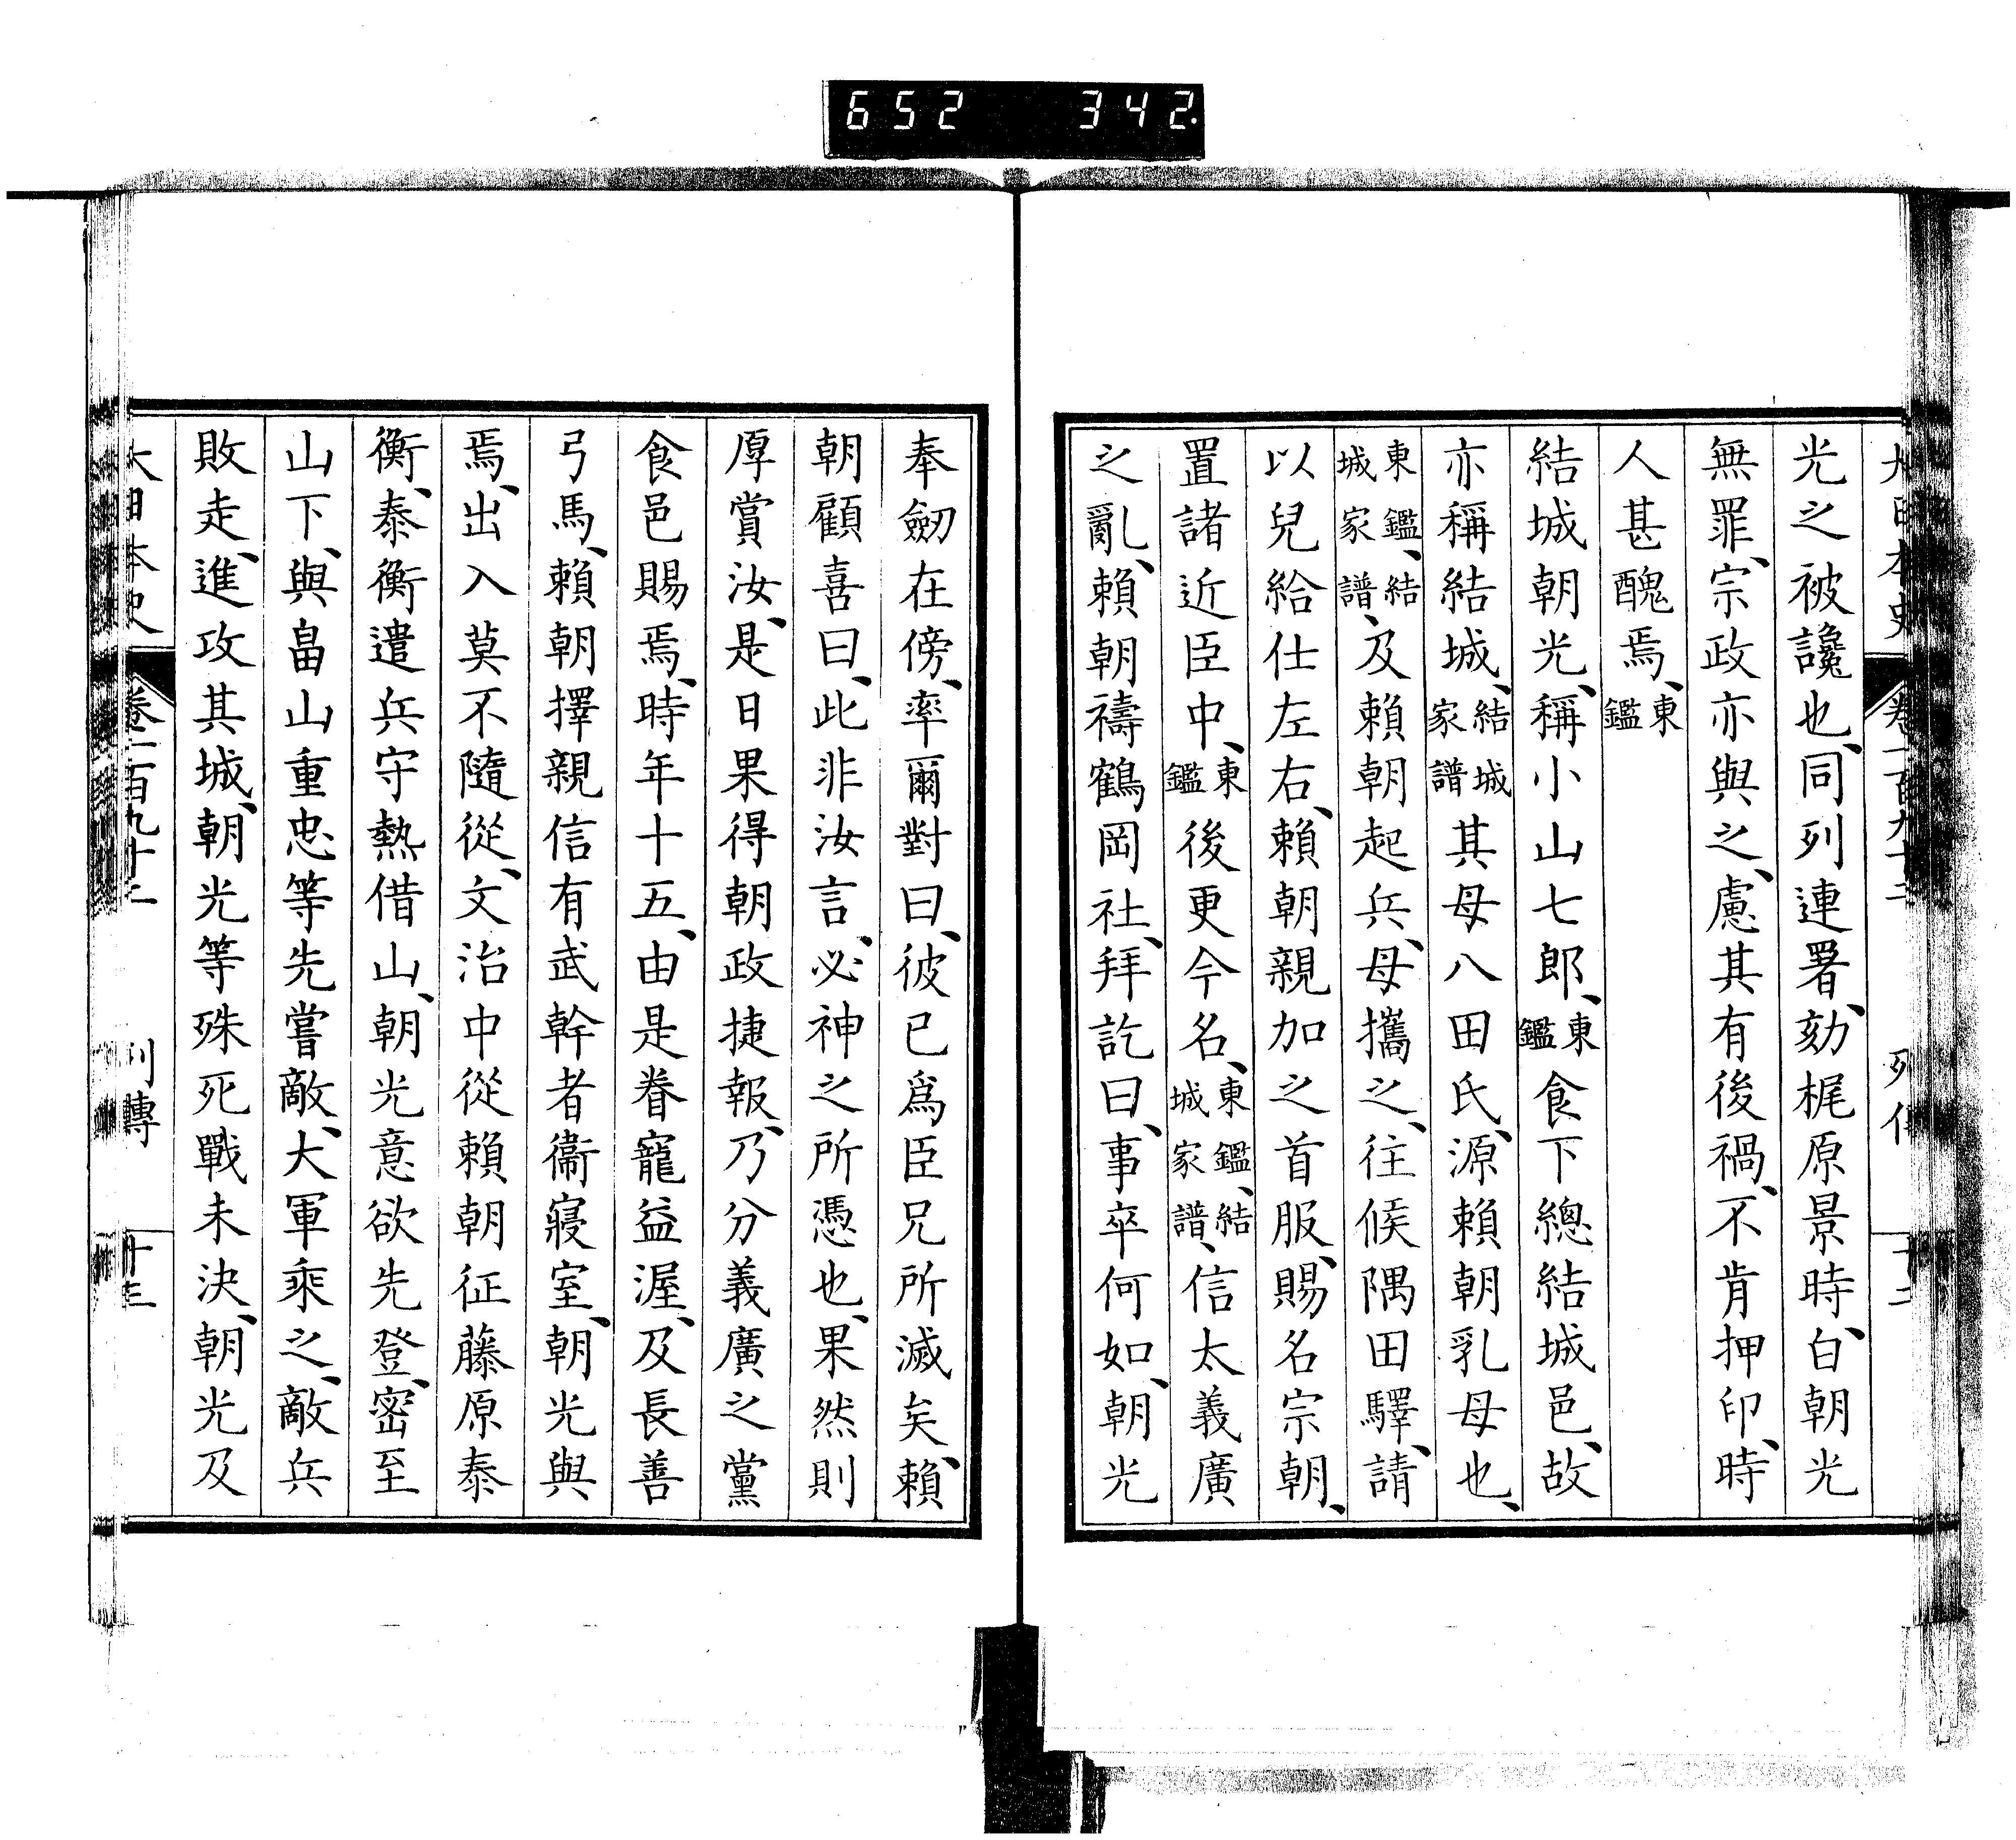 652 342.
大日本史 卷一百九十二 列傳 十二
光之被讒也、同列連署、劾梶原景時、白朝光
無罪、宗政亦與之、慮其有後禍、不肯押印、時
人甚醜焉、東鑑
結城朝光、稱小山七郎、東鑑食下總結城邑、故
亦稱結城、結城家譜其母八田氏、源賴朝乳母也、
東鑑、結城家譜、及賴朝起兵、母攜之、往候隅田驛、請
以兒給仕左右、賴朝親加之首服、賜名宗朝、
置諸近臣中、東鑑後更今名、東鑑、結城家譜、信太義廣
之亂、賴朝禱鶴岡社、拜訖曰、事卒何如、朝光
奉劒在傍、率爾對曰、彼已爲臣兄所滅矣、賴
朝顧喜曰、此非汝言、必神之所憑也、果然則
厚賞汝、是日果得朝政捷報、乃分義廣之黨
食邑賜焉、時年十五、由是眷寵益渥、及長善
弓馬、賴朝擇親信有武幹者衞寢室、朝光與
焉、出入莫不隨從、文治中從賴朝征藤原泰
衡、泰衡遣兵守熱借山、朝光意欲先登、密至
山下、與畠山重忠等先嘗敵、大軍乘之、敵兵
敗走、進攻其城、朝光等殊死戰未決、朝光及
大日本史 卷一百九十二 列傳 十三